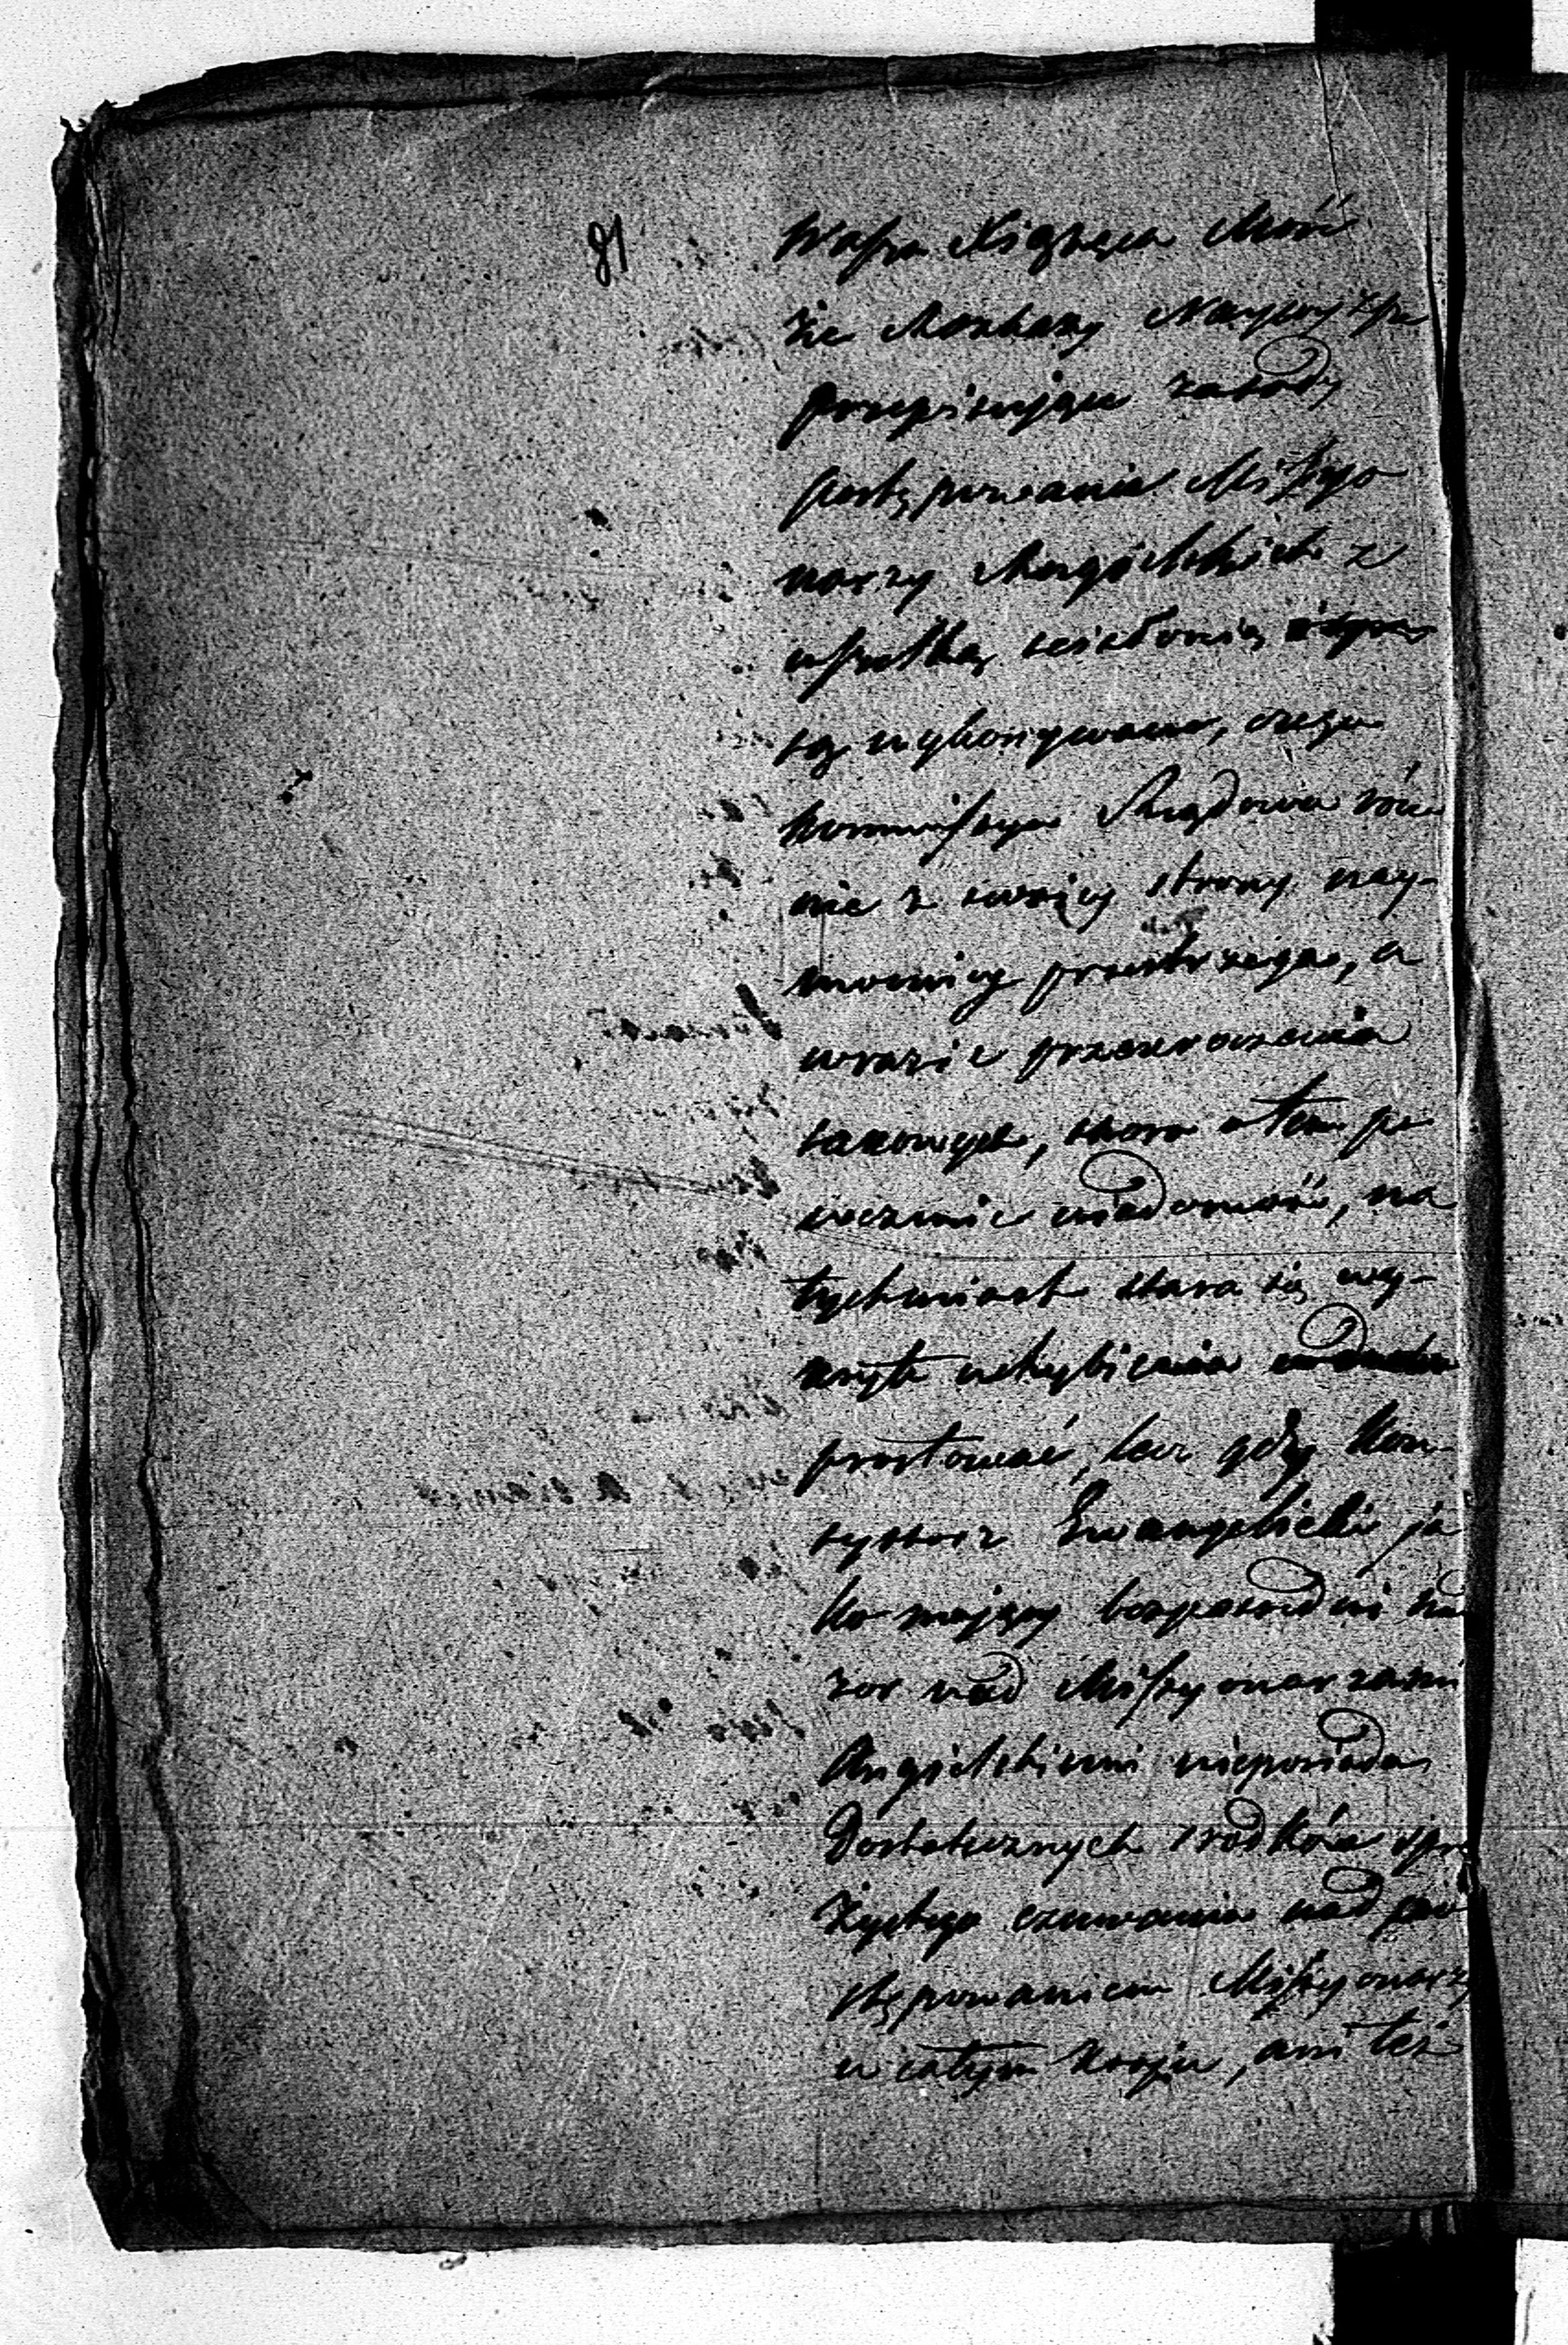 91
Wasza Xiążęca Mość
że Rozkazy Naywyższe
przepisujące zasady
postępowania Missyo
narzy Angielskich z
wszelką ścisłonią
są wykonywane, czego
Kommissya Rządowa rów
nie z swoiey strony nay-
mocniey przestrzega, a
w razie przekroczenia
takowych, skoro o tem po
weźmie wiadomość, na
tychmiast stara się wy-
kryte uchybienia
prostować, lecz gdy Kon-
systorz Ewangelicki ja
ko mający bezpośredni na
zor nad Missyonarzami
Angielskiemi nieposiada
Dostatecznych srodków sprę
żystego czuwania nad po
stępowaniem Missyonarzy
w całym kraju, ani też